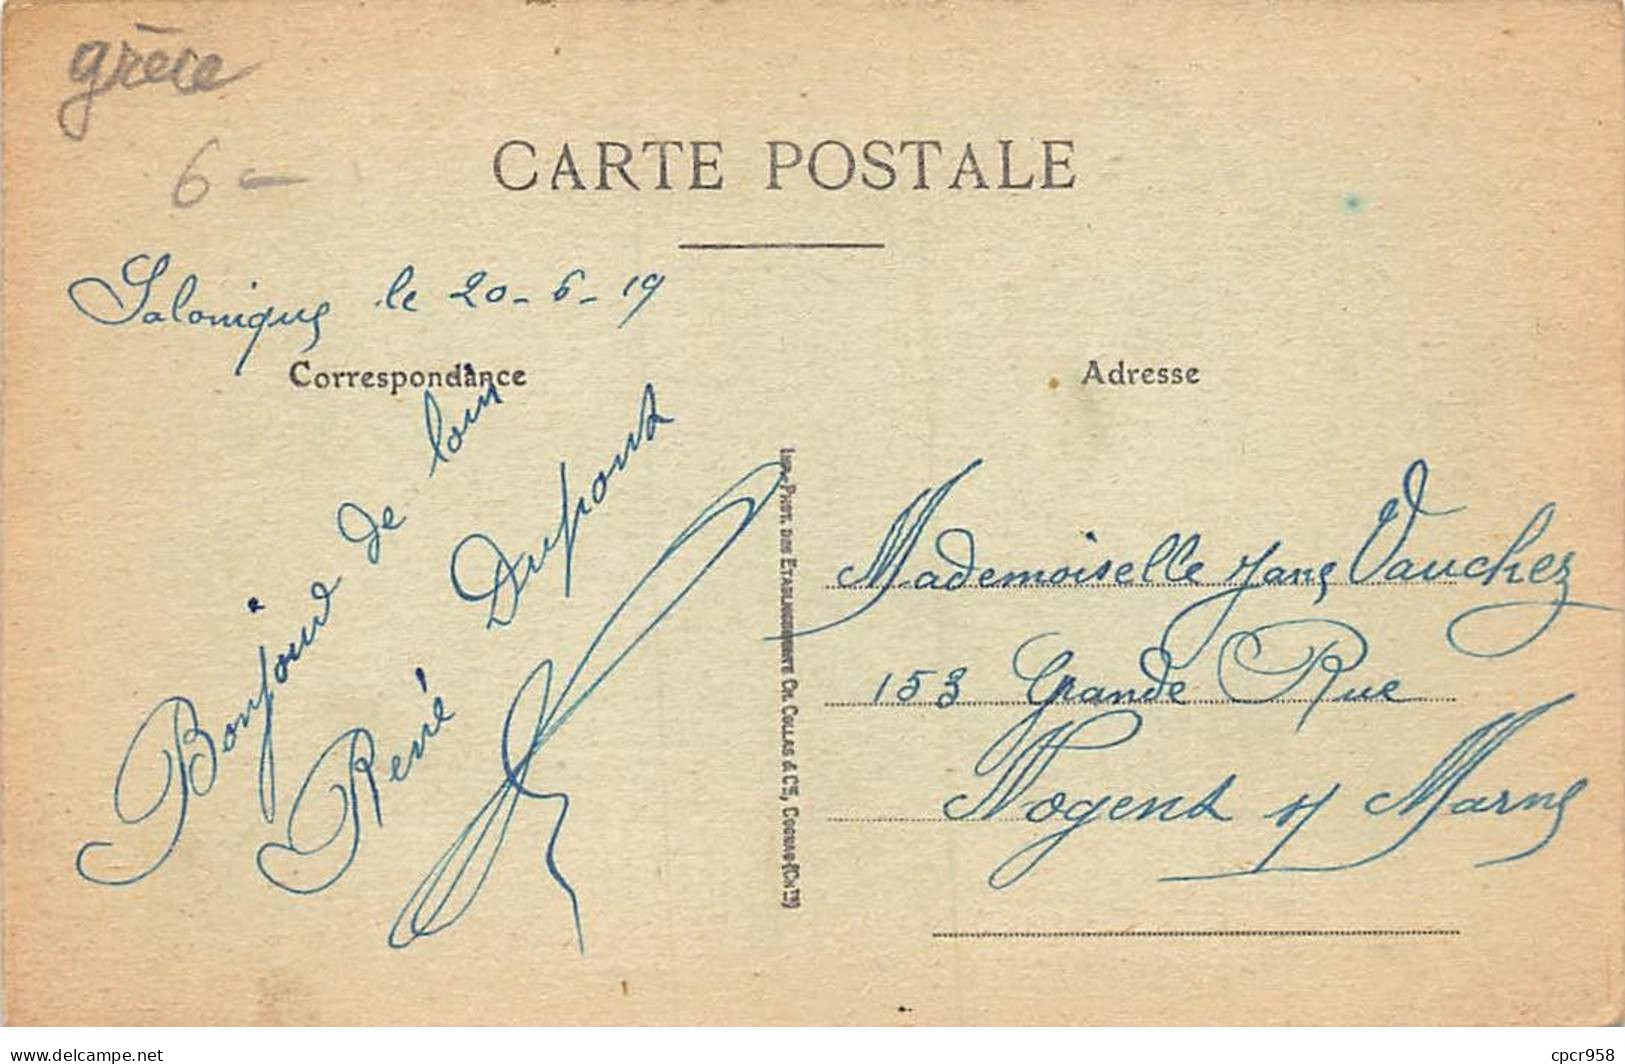 grèce
6 -
CARTE POSTALE
Salonique le 20-6-19
Correspondance
Adresse
Bonjour de loin
René Dupont
Mademoiselle Jane Vauchez
153 Grande Rue
Nogent s/ Marne
IMP.-PHOT. DES ETABLISSEMENTS CH. COLLAS & Cie, COGNAC-(Chte)
delcampe.net
cpcr958